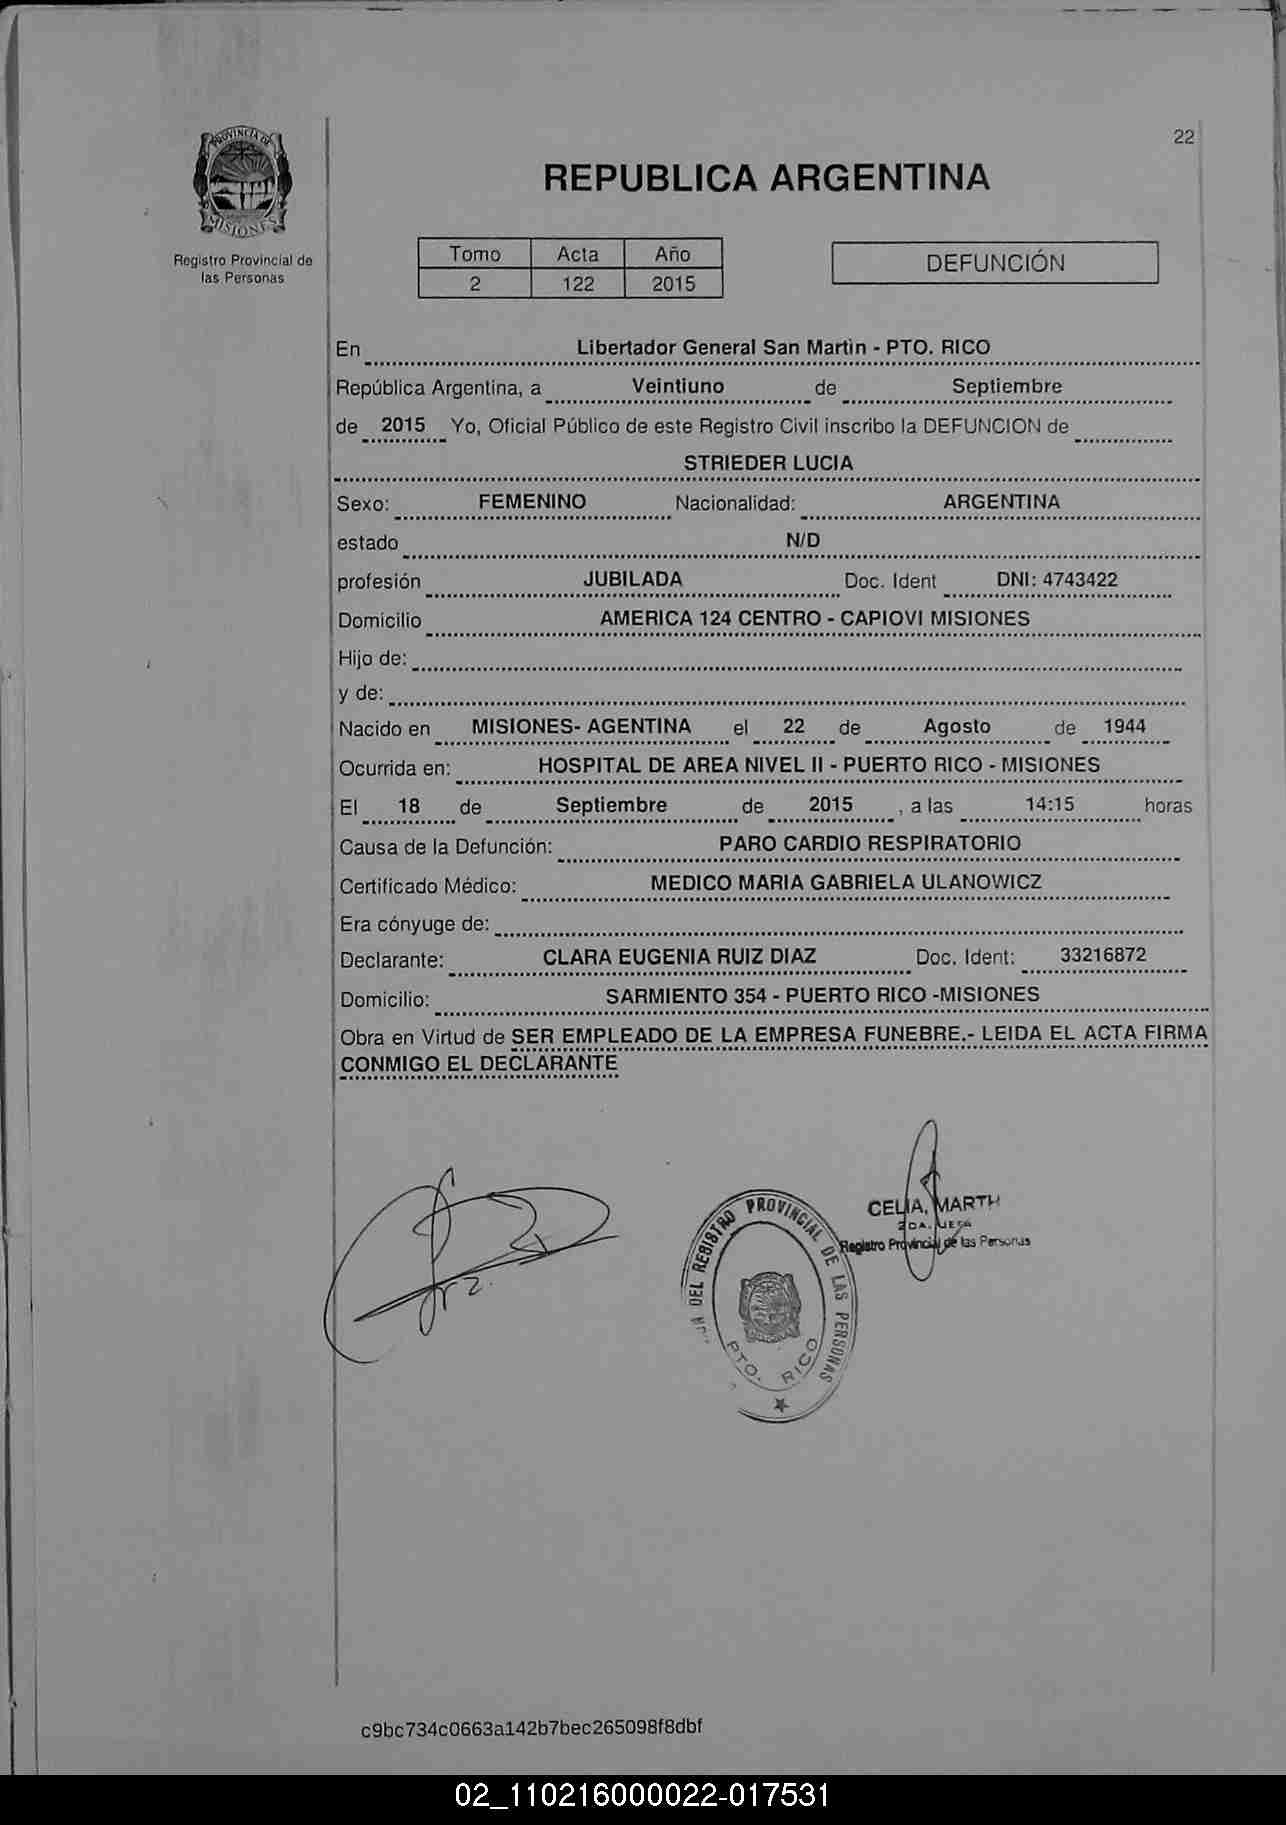 22
PROVINCIA DE
MISIONES
Registro Provincial de
las Personas
REPUBLICA ARGENTINA
Tomo Acta Año
2 122 2015
DEFUNCIÓN
En Libertador General San Martin - PTO. RICO
República Argentina, a Veintiuno de Septiembre
de 2015 Yo, Oficial Público de este Registro Civil inscribo la DEFUNCION de
STRIEDER LUCIA
Sexo: FEMENINO Nacionalidad: ARGENTINA
estado N/D
profesión JUBILADA Doc. Ident DNI: 4743422
Domicilio AMERICA 124 CENTRO - CAPIOVI MISIONES
Hijo de:
y de:
Nacido en MISIONES- AGENTINA el 22 de Agosto de 1944
Ocurrida en: HOSPITAL DE AREA NIVEL II - PUERTO RICO - MISIONES
El 18 de Septiembre de 2015 , a las 14:15 horas
Causa de la Defunción: PARO CARDIO RESPIRATORIO
Certificado Médico: MEDICO MARIA GABRIELA ULANOWICZ
Era cónyuge de:
Declarante: CLARA EUGENIA RUIZ DIAZ Doc. Ident: 33216872
Domicilio: SARMIENTO 354 - PUERTO RICO -MISIONES
Obra en Virtud de SER EMPLEADO DE LA EMPRESA FUNEBRE.- LEIDA EL ACTA FIRMA
CONMIGO EL DECLARANTE
DEL REGISTRO PROVINCIAL DE LAS PERSONAS
PTO. RICO
CELIA, MARTH
2DA. JEFA
Registro Provincial de las Personas
c9bc734c0663a142b7bec265098f8dbf
02_110216000022-017531